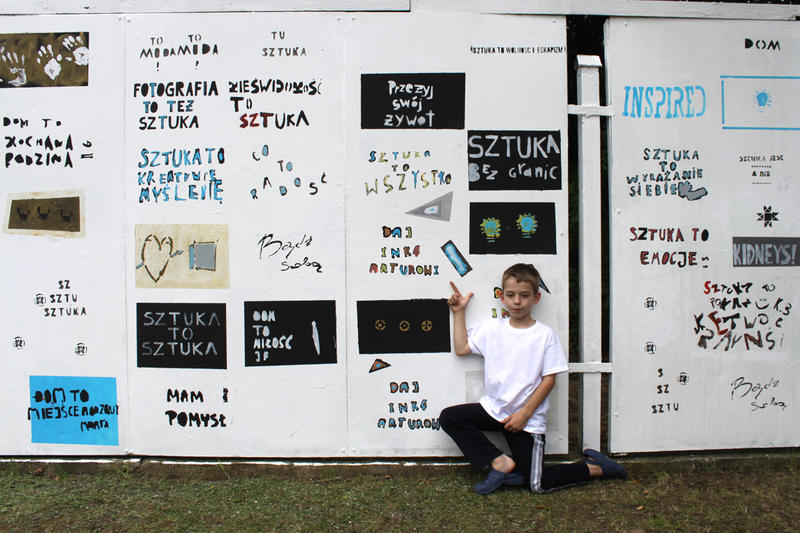 DOM TO
KOCHANA
RODZINA
SZ
SZTU
SZTUKA
DOM TO
MIEJSCE RODZINY
MARTA
TO TO
MODAMODA
! !
FOTOGRAFIA
TO TEŻ
SZTUKA
SZTUKA TO
KREATYWNE
MYŚLENIE
SZTUKA
TO
SZTUKA
MAM
POMYSŁ
TU
SZTUKA
NIEŚWIDOMOŚĆ
TO
SZTUKA
CO
RADOŚĆ
Bądź
Sobą
DOM
TO
MIŁOŚĆ
Przeżyj
swój
żywot
SZTUKA
TO
WSZYSTKO
DAJ
INKĘ
ARTUROWI
DAJ
INKĘ
ARTUROWI
SZTUKA TO WOLNOŚĆ I ESKAPIZM!
SZTUKA
BEZ GRANIC
DOM
INSPIRED
SZTUKA
TO
WYRAŻANIE
SIEBIE
SZTUKA JEST
A NIE
SZTUKA TO
EMOCJE
KIDNEYS!
SZTUKA TO
S
SZ
SZTU
Bądź
Sobą